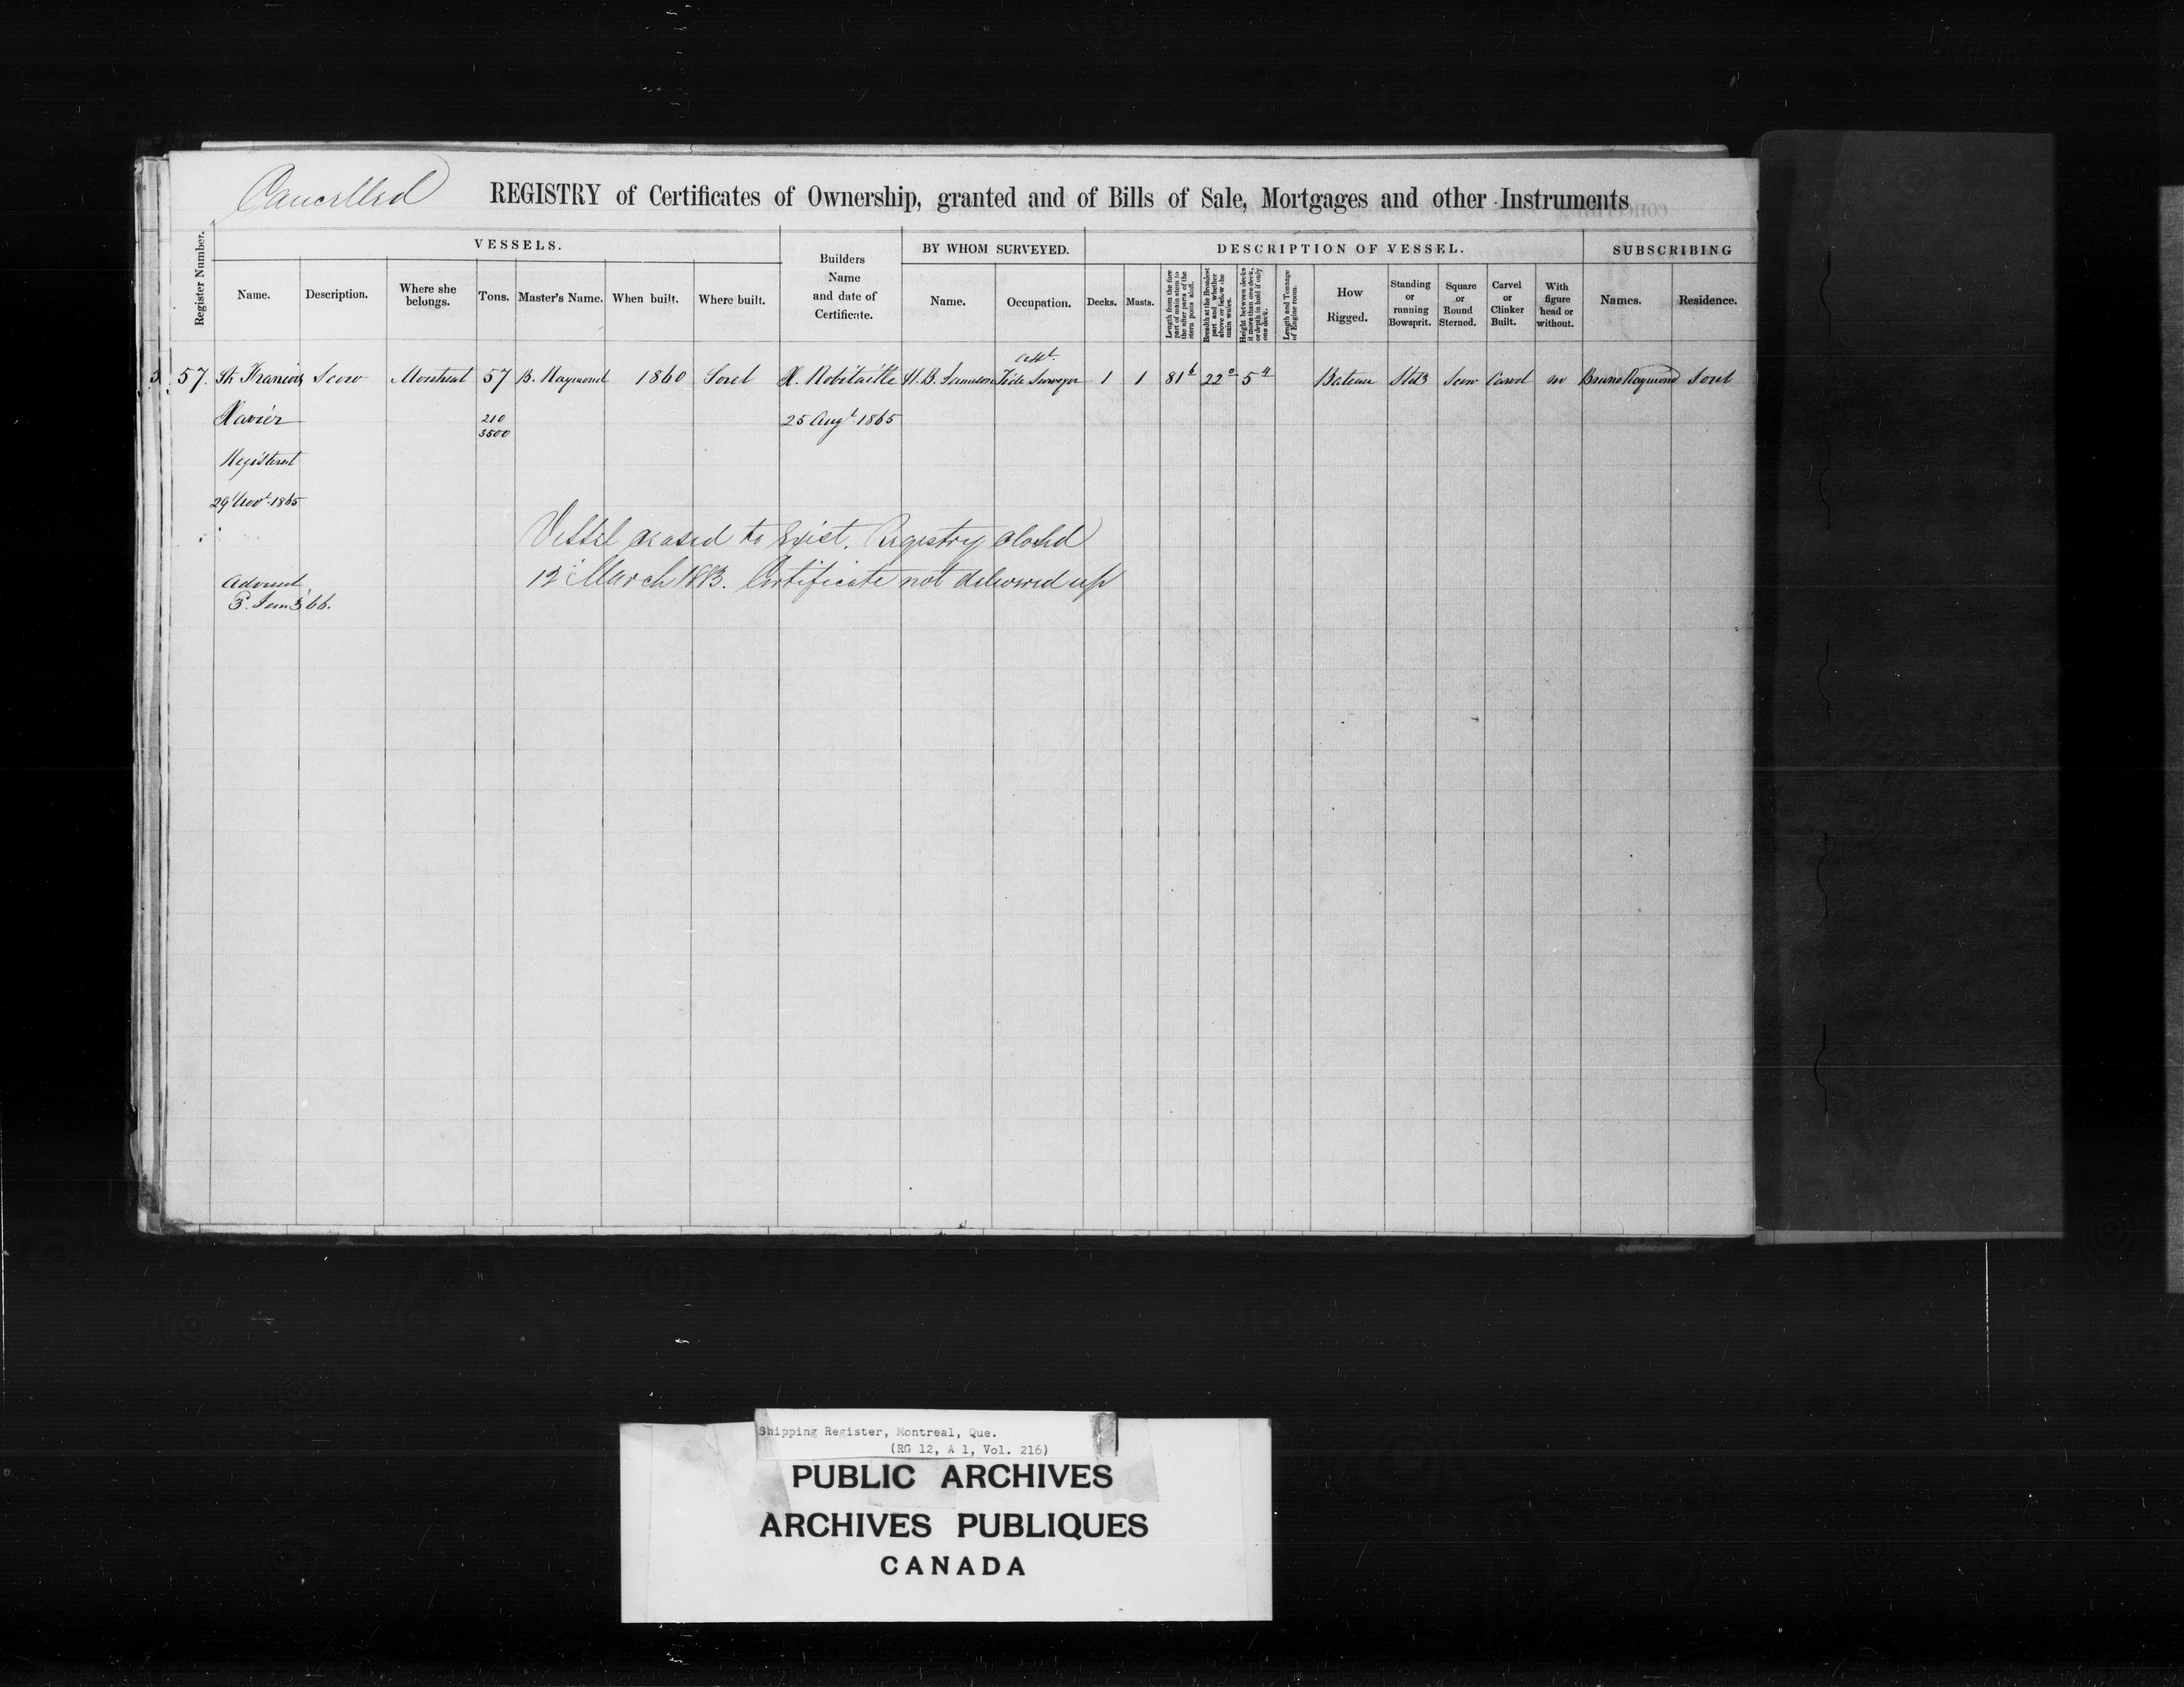 Cancelled
REGISTRY of Certificates of Ownership, granted and of Bills of Sale, Mortgages and other Instruments
Register Number.
VESSELS.
Name.
Description.
Where she belongs.
Tons.
Master's Name.
When built.
Where built.
Builders
Name
and date of
Certificate.
BY WHOM SURVEYED.
Name.
Occupation.
DESCRIPTION OF VESSEL.
Decks.
Masts.
Length from the fore part of main stem to the after parts of the stern posts aloft.
Breadth at the Broadest part and whether above or below the main wales.
Height between decks if more than one deck, or depth in hold if only one deck.
Length and Tonnage of Engine room.
How
Rigged.
Standing
or
running
Bowsprit.
Square
or
Round
Sterned.
Carvel
or
Clinker
Built.
With
figure
head or
without.
SUBSCRIBING
Names.
Residence.
57. St Francois Scow Montreal 57 B. Raymond 1860 Sorel X. Robitaille H. B. Asst. Tide Surveyor 1 1 81 6 22 0 5 4 Bateau Scow Carvel no Bruno Raymond Sorel
Xavier 210 25 Augt 1865
3500
Registered
29 Novr. 1865
Vessel ceased to exist. Registry closed
12 March 1883. Certificate not delivered up
Advised
3. Jan 3 '66.
Shipping Register, Montreal, Que.
(RG 12, A 1, Vol. 216)
PUBLIC ARCHIVES
ARCHIVES PUBLIQUES
CANADA